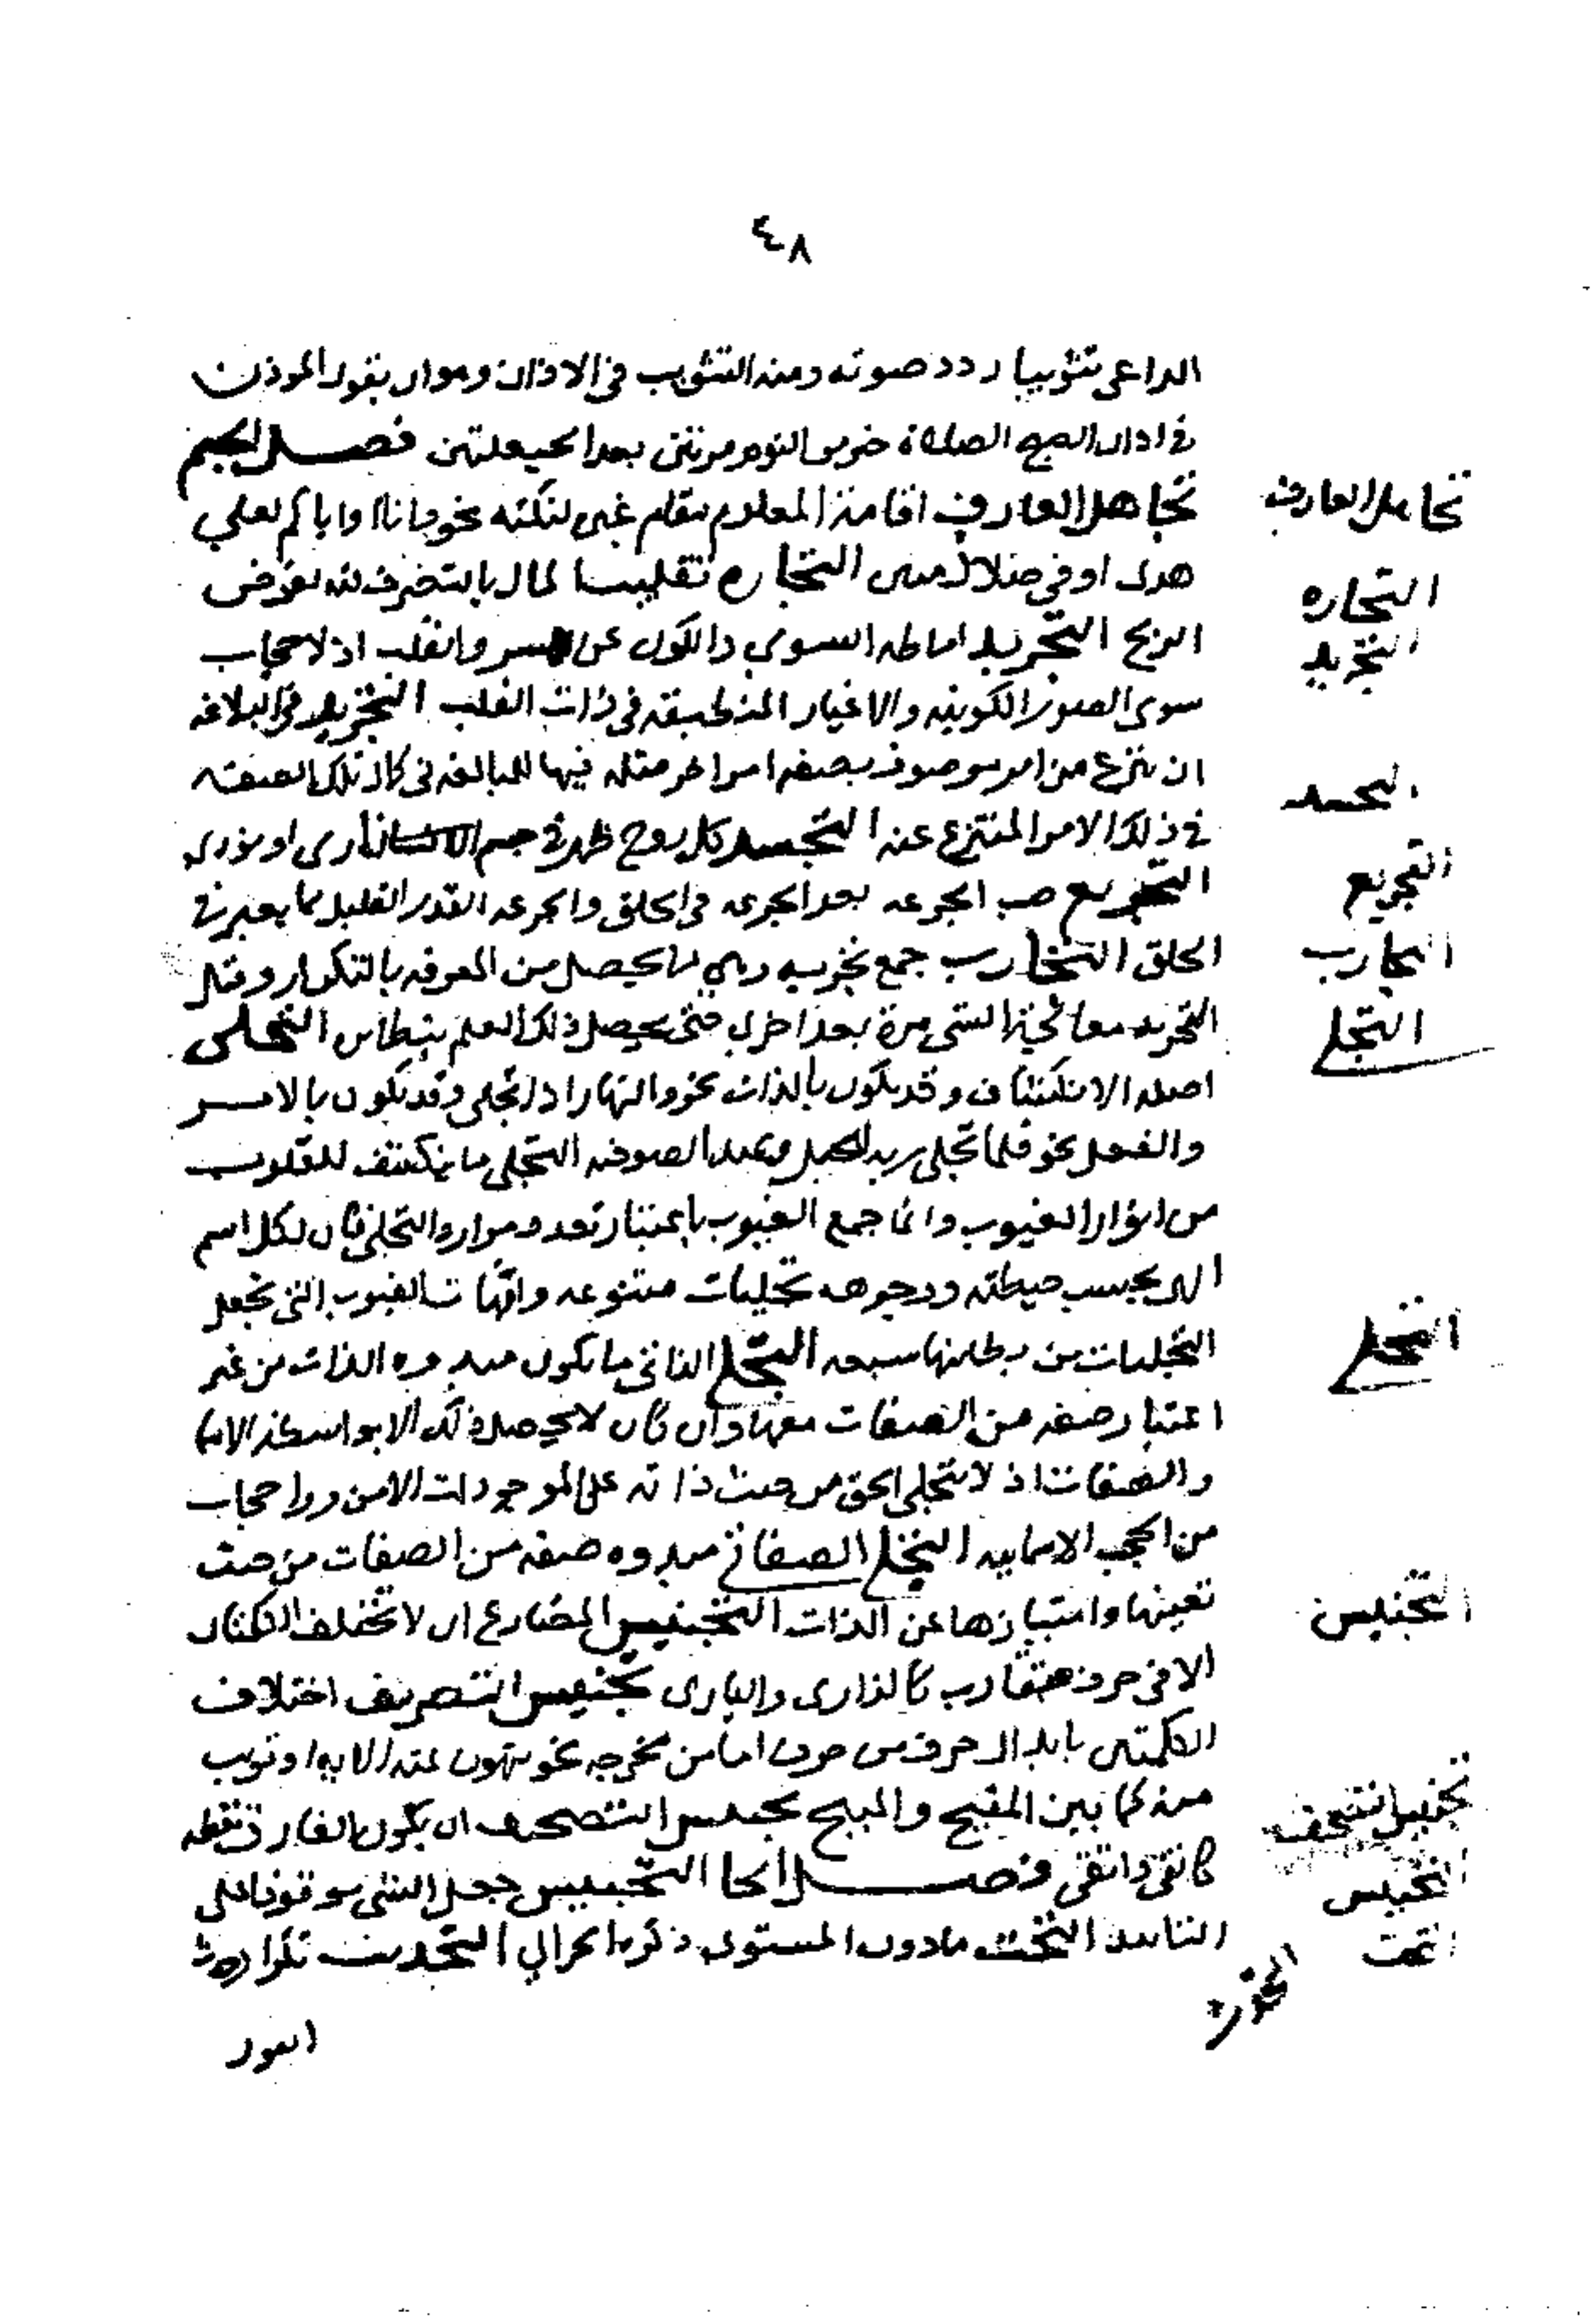 ٤٨
الداعي تثويبا ردد صوته ومنه التثويب في الاذان وهو ان يقول الموذن
في اذان الصبح الصلاة خير من النوم مرتين بعد الحيعلتين فصل الجيم
تجاهل العارف
تجاهل العارف اقامة المعلوم مقام غيره لنكته نحو وانا او اياكم لعلى
التجاره
هدى او في ضلال مبين التجاره تقليب المال بالتصرف فيه لغرض
التجريد
الربح التجريد اماطه السوى والكون عن السر والقلب اذ لا حجاب
سوى الصور الكونيه والاغيار المنطبقه في ذات القلب التجريد في البلاغه
ان ينتزع من امر موصوف بصفه امر اخر مثله فيها للمبالغه في كمال تلك الصفه
التجسد
في ذلك الامر المنتزع عنه التجسد كل روح ظهر في جسم ناري او نوري
التجريع
التجريع صب الجرعه بعد الجرعه في الحلق والجرعه القدر القليل مما يعبر في
التجارب
الحلق التجارب جمع تجربه وهي ما يحصل من المعرفه بالتكرار وقيل
التجلي
التجربه معالجة الشي مرة بعد اخرى حتى يحصل ذلك العلم بنظاير التجلي
اصله الانكشاف وقد يكون بالذات نحو والنهار اذا تجلى وقد يكون بالامر
والفعل نحو فلما تجلى ربه للجبل وعند الصوفيه التجلي ما ينكشف للقلوب
من انوار الغيوب وانما جمع الغيوب باعتبار تعدد موارد التجلي فان لكل اسم
الهي بحسب حيطته ووجوهه تجليات متنوعه وامهات الغيوب التي تجعل
التجلي
التجليات من بطانها سبعه التجلي الذاتي ما يكون مبدوه الذات من غير
اعتبار صفه من الصفات معها وان كان لا يحصل ذلك الا بواسطة الاسما
والصفات اذ لا يتجلى الحق من حيث ذاته على الموجودات الا من ورا حجاب
من الحجب الاسمايه التجلي الصفاتي مبدوه صفه من الصفات من حيث
التجنيس
تعينها وامتيازها عن الذات التجنيس المضارع ان لا تختلف الكلمتان
الا في حرف متقارب كالداري والباري تجنيس التصريف اختلاف
الكلمتين بابدال حرف من حرف اما من مخرجه نحو ينهون عنه الايه او قريب
تجنيس التصحيف
منه كما بين المفيح والمبيح تجنيس التصحيف ان يكون الفارق نقطه
التحبيس
كانقى واتقى فصل الحا التحبيس جعل الشي موقوفا على
التحت
التابيد التحت ما دون المستوى ذكره الحرالي التحديث تكرار
التحديث